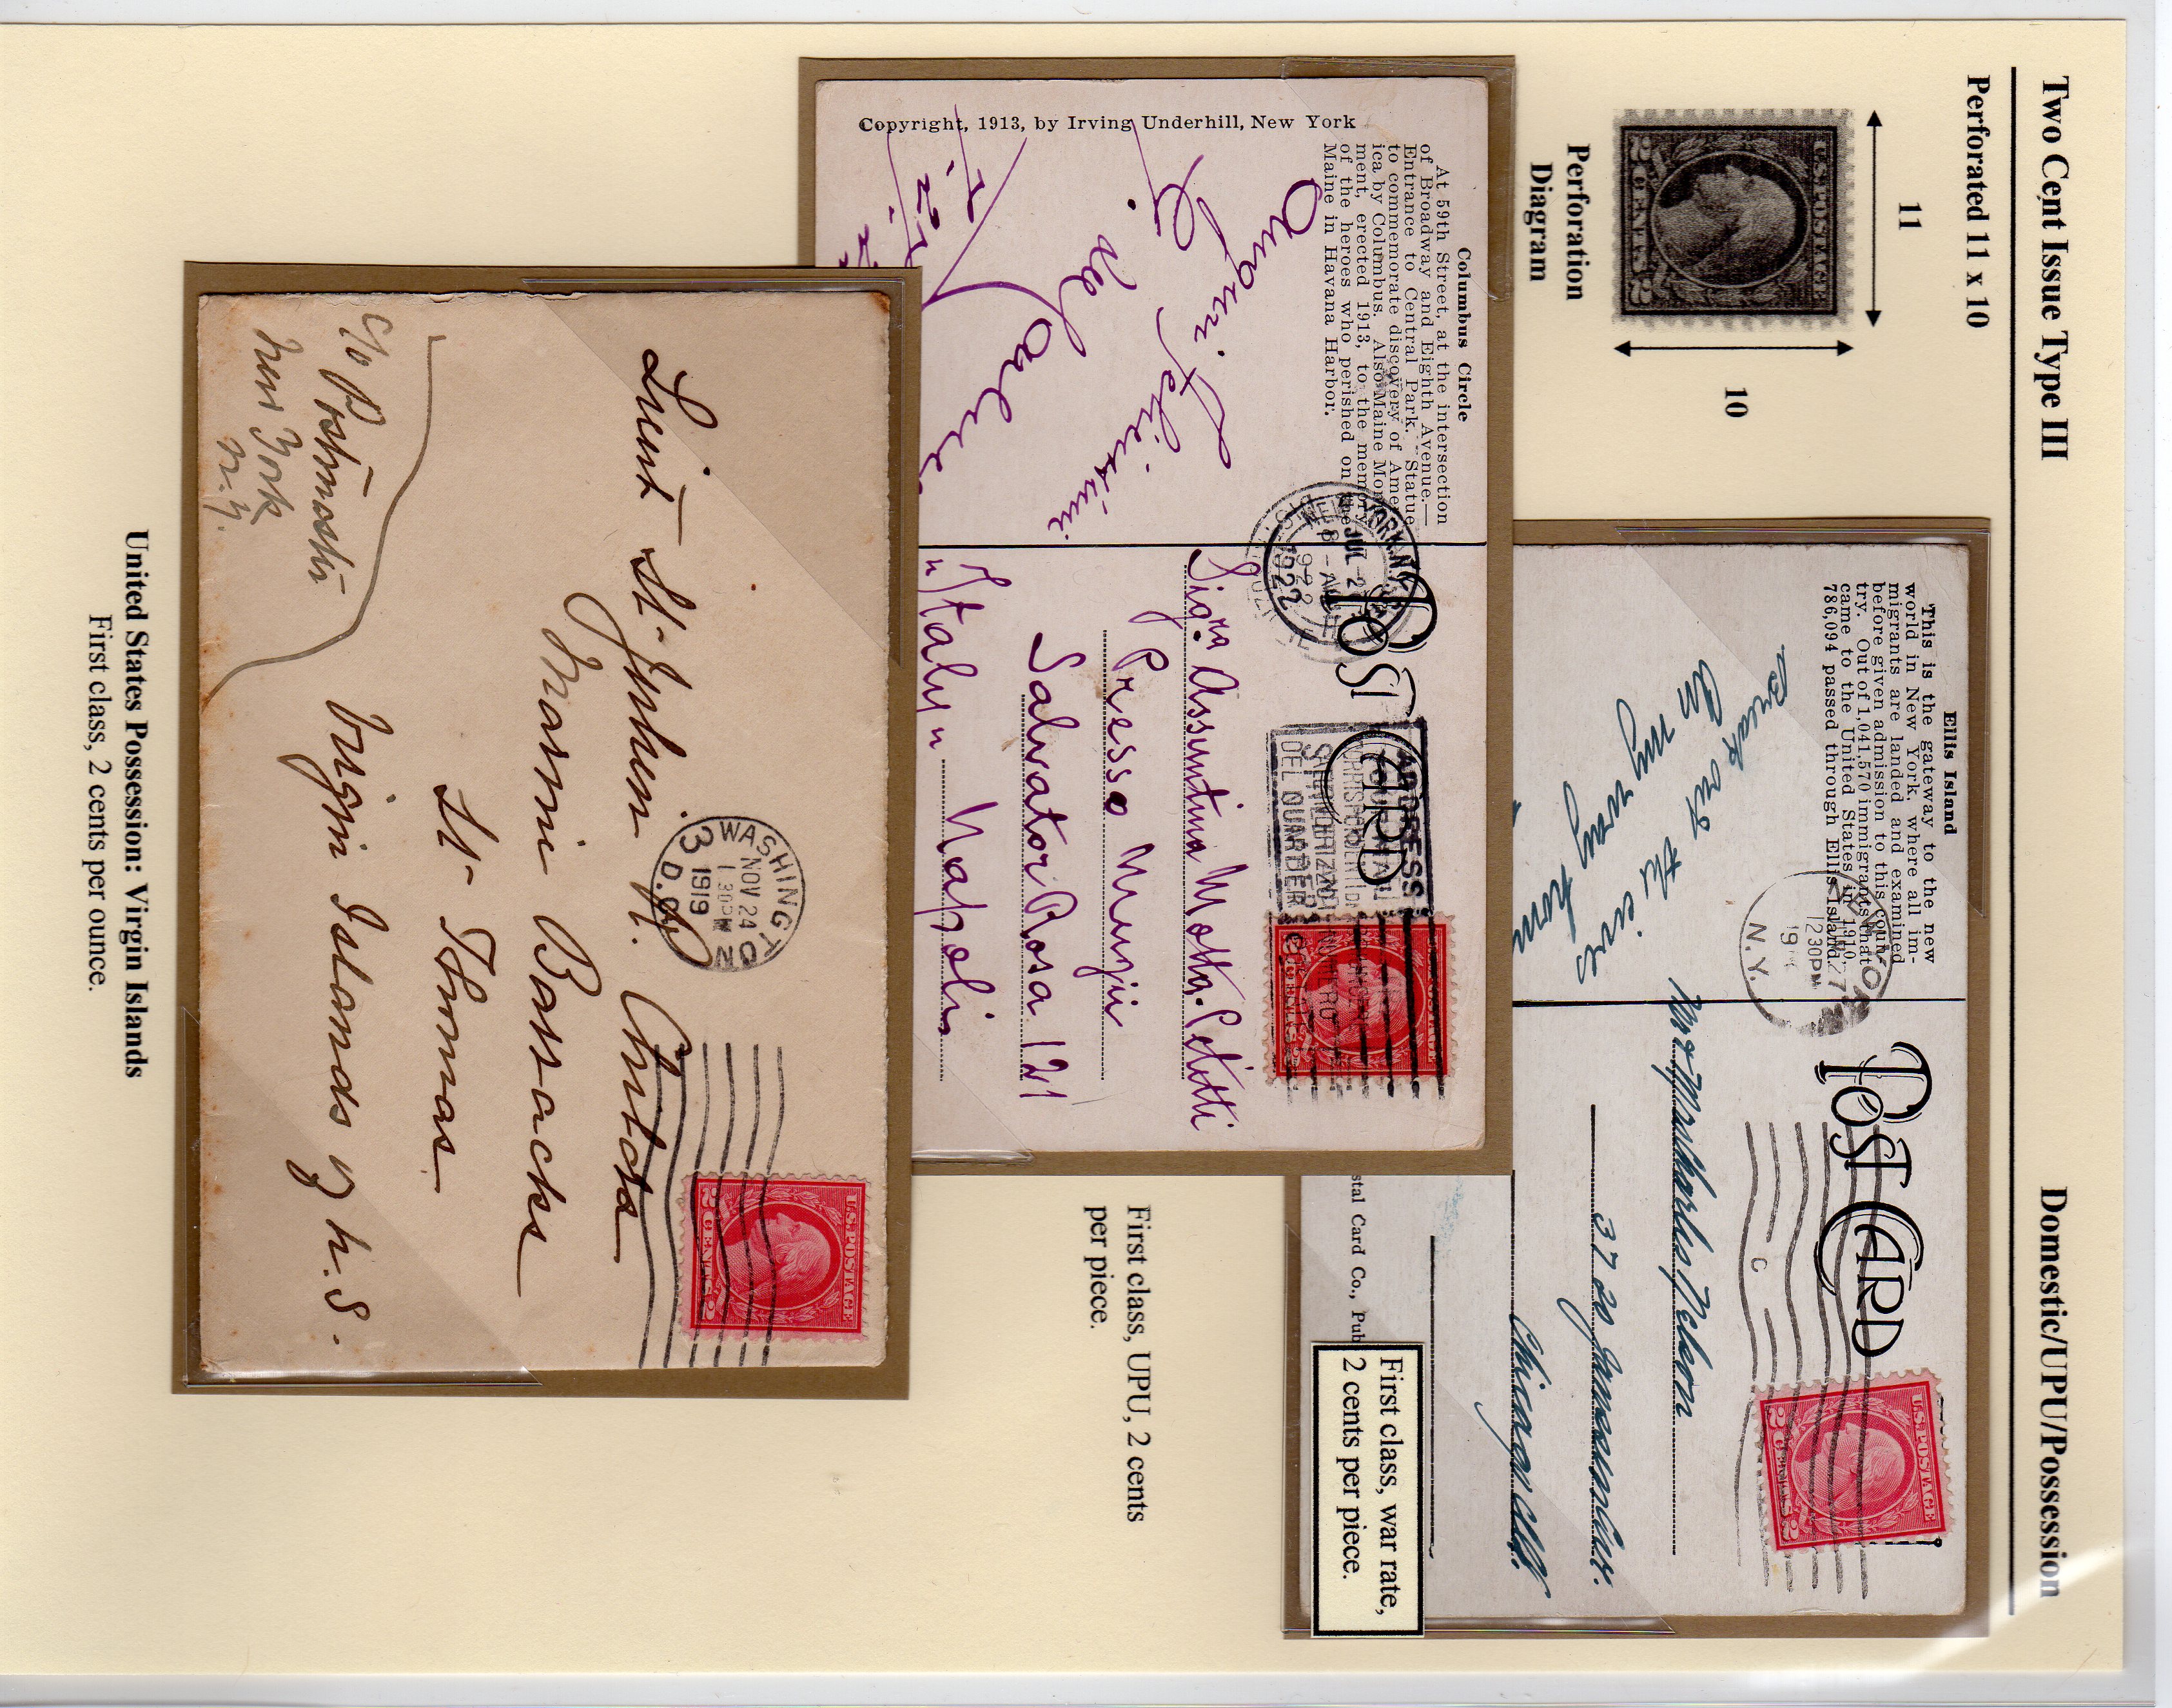 Two Cent Issue Type III
Domestic/UPU/Possession
Perforated 11 x 10
11
10
Perforation
Diagram
U.S. POSTAGE
2 CENTS 2
Ellis Island
This is the gateway to the new
world in New York, where all im-
migrants are landed and examined
before given admission to this coun-
try. Out of 1,041,570 immigrants that
came to the United States in 1910,
786,094 passed through Ellis Island.
POST CARD
NEW YORK
N.Y.
1230PM
U.S. POSTAGE
2 CENTS 2
On my way home
3720
Chicago Ill.
stal Card Co., Pub
First class, war rate,
2 cents per piece.
Columbus Circle
At 59th Street, at the intersection
of Broadway and Eighth Avenue.—
Entrance to Central Park. Statue
to commemorate discovery of Amer
ica by Columbus. Also Maine Mo
ment, erected 1913, to the memo
of the heroes who perished on the
Maine in Havana Harbor.
Copyright, 1913, by Irving Underhill, New York
POST CARD
NEW YORK, N.Y.
JUL 2
8-AM
1922
ADDRESS
DEL QUARTIER
Auguri
Sig.ra Assuntina Motta-Petitti
Presso Nunzii
Salvator Rosa 121
"Italy" Napoli
First class, UPU, 2 cents
per piece.
WASHINGTON
NOV 24
1 30PM
1919
D.C.
3
U.S. POSTAGE
2 CENTS 2
Lieut St. Julien R. Childs
Marine Barracks
St. Thomas
Virgin Islands of U.S.
c/o Postmaster
New York
N.Y.
United States Possession: Virgin Islands
First class, 2 cents per ounce.